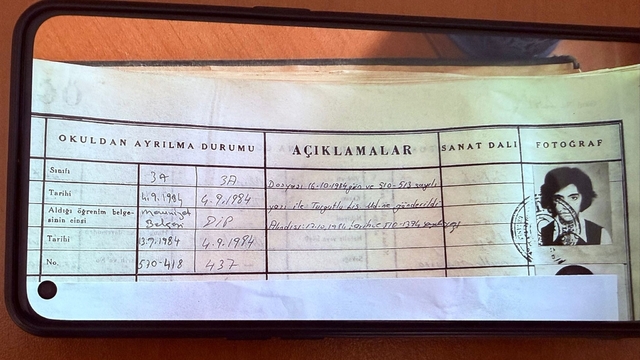 OKULDAN AYRILMA DURUMU
AÇIKLAMALAR
SANAT DALI
FOTOĞRAF
Sınıfı 3A 3A
Tarihi 4.9.1984 4.9.1984
Aldığı öğrenim belge-
sinin cinsi Mezuniyet Belgesi DİP
Tarihi 3.9.1984 4.9.1984
No. 570-418 437
Dosyası 16.10.1984 gün ve 510-513 sayılı
yazı ile Turgutlu Lis. Müd.ne gönderildi
17.10.1984 510-1394